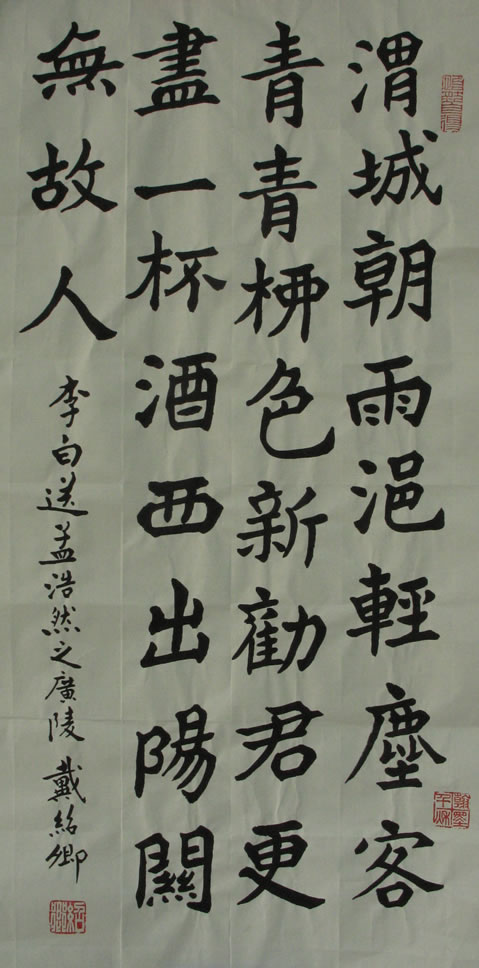 渭城朝雨浥輕塵客
青青柳色新勸君更
盡一杯酒西出陽關
無故人
李白送孟浩然之廣陵 戴紹卿